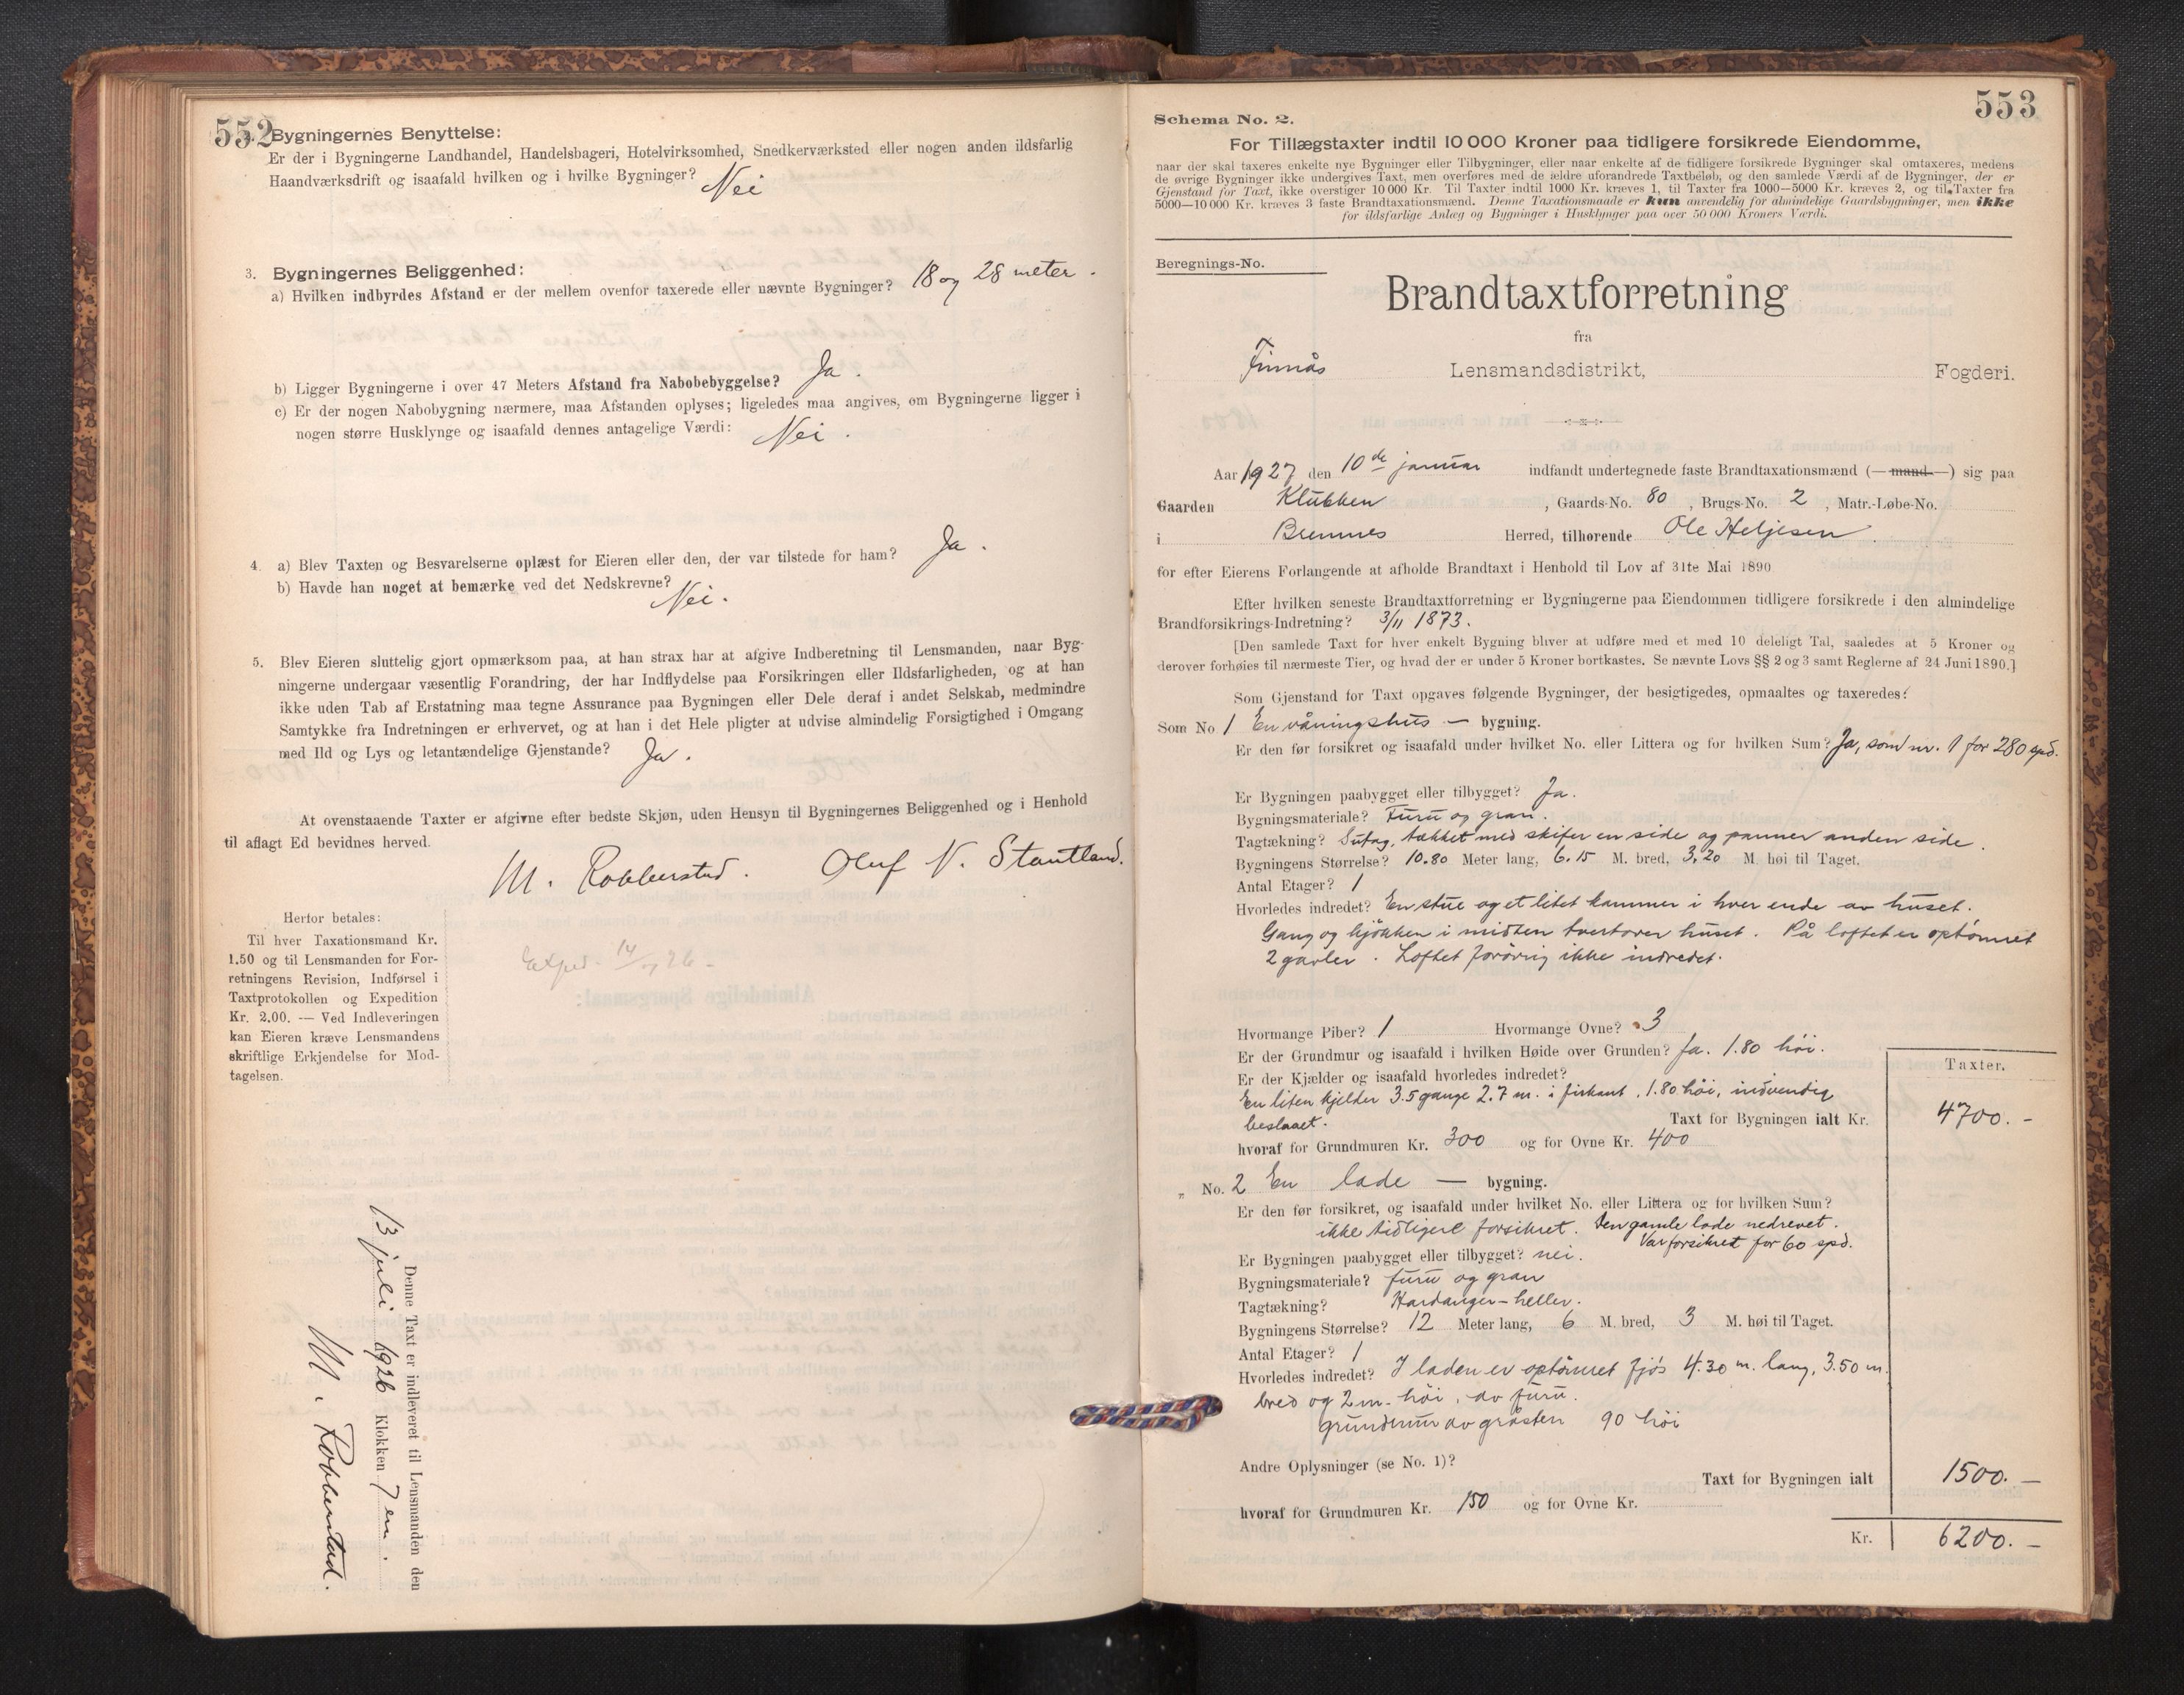 552
Bygningernes Benyttelse:
Er der i Bygningerne Landhandel, Handelsbageri, Hotelvirksomhed, Snedkerværksted eller nogen anden ildsfarlig
Haandværksdrift og isaafald hvilken og i hvilke Bygninger? Nei
3. Bygningernes Beliggenhed:
a) Hvilken indbyrdes Afstand er der mellem ovenfor taxerede eller nævnte Bygninger? 18 og 28 meter.
b) Ligger Bygningerne i over 47 Meters Afstand fra Nabobebyggelse? Ja.
c) Er der nogen Nabobygning nærmere, maa Afstanden oplyses; ligeledes maa angives, om Bygningerne ligger i
nogen større Husklynge og isaafald dennes antagelige Værdi: Nei.
4. a) Blev Taxten og Besvarelserne oplæst for Eieren eller den, der var tilstede for ham? Ja.
b) Havde han noget at bemærke ved det Nedskrevne? Nei.
5. Blev Eieren sluttelig gjort opmærksom paa, at han strax har at afgive Indberetning til Lensmanden, naar Byg-
ningerne undergaar væsentlig Forandring, der har Indflydelse paa Forsikringen eller Ildsfarligheden, og at han
ikke uden Tab af Erstatning maa tegne Assurance paa Bygningen eller Dele deraf i andet Selskab, medmindre
Samtykke fra Indretningen er erhvervet, og at han i det Hele pligter at udvise almindelig Forsigtighed i Omgang
med Ild og Lys og letantændelige Gjenstande? Ja.
At ovenstaaende Taxter er afgivne efter bedste Skjøn, uden Hensyn til Bygningernes Beliggenhed og i Henhold
til aflagt Ed bevidnes herved.
M. Robberstad. Oluf N. Stautland.
Herfor betales:
Til hver Taxationsmand Kr.
1.50 og til Lensmanden for For-
retningens Revision, Indførsel i
Taxtprotokollen og Expedition
Kr. 2.00. — Ved Indleveringen
kan Eieren kræve Lensmandens
skriftlige Erkjendelse for Mod-
tagelsen.
Exped. 14/7 26 -
Denne Taxt er indleveret til Lensmanden den
13 juli 1926 Klokken 7 em.
M. Robberstad.
553
Schema No. 2.
For Tillægstaxter indtil 10 000 Kroner paa tidligere forsikrede Eiendomme,
naar der skal taxeres enkelte nye Bygninger eller Tilbygninger, eller naar enkelte af de tidligere forsikrede Bygninger skal omtaxeres, medens
de øvrige Bygninger ikke undergives Taxt, men overføres med de ældre uforandrede Taxtbeløb, og den samlede Værdi af de Bygninger, der er
Gjenstand for Taxt, ikke overstiger 10 000 Kr. Til Taxter indtil 1000 Kr. kræves 1, til Taxter fra 1000—5000 Kr. kræves 2, og til Taxter fra
5000—10 000 Kr. kræves 3 faste Brandtaxationsmænd. Denne Taxationsmaade er kun anvendelig for almindelige Gaardsbygninger, men ikke
for ildsfarlige Anlæg og Bygninger i Husklynger paa over 50 000 Kroners Værdi.
Beregnings-No.
Brandtaxtforretning
fra
Finnås Lensmandsdistrikt, Fogderi.
Aar 1927 den 10de januar indfandt undertegnede faste Brandtaxationsmænd (— mand —) sig paa
Gaarden Klubben, Gaards-No. 80, Brugs-No. 2, Matr.-Løbe-No.
i Bremnes Herred, tilhørende Ole Heljesen
for efter Eierens Forlangende at afholde Brandtaxt i Henhold til Lov af 31te Mai 1890
Efter hvilken seneste Brandtaxtforretning er Bygningerne paa Eiendommen tidligere forsikrede i den almindelige
Brandforsikrings-Indretning? 3/11 1873.
[Den samlede Taxt for hver enkelt Bygning bliver at udføre med et med 10 deleligt Tal, saaledes at 5 Kroner og
derover forhøies til nærmeste Tier, og hvad der er under 5 Kroner bortkastes. Se nævnte Lovs §§ 2 og 3 samt Reglerne af 24 Juni 1890.]
Som Gjenstand for Taxt opgaves følgende Bygninger, der besigtigedes, opmaaltes og taxeredes:
Som No 1 En våningshus — bygning.
Er den før forsikret og isaafald under hvilket No. eller Littera og for hvilken Sum? Ja, som nr. 1 for 280 spd.
Er Bygningen paabygget eller tilbygget? Ja.
Bygningsmateriale? Furu og gran.
Tagtækning? Sutag, tækket med skifer en side og panner anden side.
Bygningens Størrelse? 10.80 Meter lang, 6.15 M. bred, 3,20 M. høi til Taget.
Antal Etager? 1
Hvorledes indredet? En stue og et litet kammer i hver ende av huset.
Gang og kjøkken i midten tvertover huset. På loftet er optømret
2 gavler. Loftet forøvrig ikke indredet.
Hvormange Piber? 1 Hvormange Ovne? 3
Er der Grundmur og isaafald i hvilken Høide over Grunden? Ja. 1.80 høi.
Er der Kjælder og isaafald hvorledes indredet?
En liten kjelder 3.5 gange 2.7 m. i firkant, 1.80 høi, indvendig
beslaaet. Taxt for Bygningen ialt Kr.
Taxter.
4700.-
hvoraf for Grundmuren Kr. 300 og for Ovne Kr. 400
„ No. 2 En lade — bygning.
Er den før forsikret, og isaafald under hvilket No. eller Littera og for hvilken Sum?
ikke tidligere forsikret. Den gamle lade nedrevet.
Var forsikret for 60 spd.
Er Bygningen paabygget eller tilbygget? nei.
Bygningsmateriale? furu og gran
Tagtækning? Hardanger-heller.
Bygningens Størrelse? 12 Meter lang, 6 M. bred, 3 M. høi til Taget.
Antal Etager? 1
Hvorledes indredet? I laden er optømret fjøs 4.30 m. lang, 3.50 m.
bred og 2 m. høi, av furu.
grundmur av gråsten 90 høi
Andre Oplysninger (se No. 1)?
Taxt for Bygningen ialt 1500.-
hvoraf for Grundmuren Kr. 150 og for Ovne Kr.
Kr. 6200.-